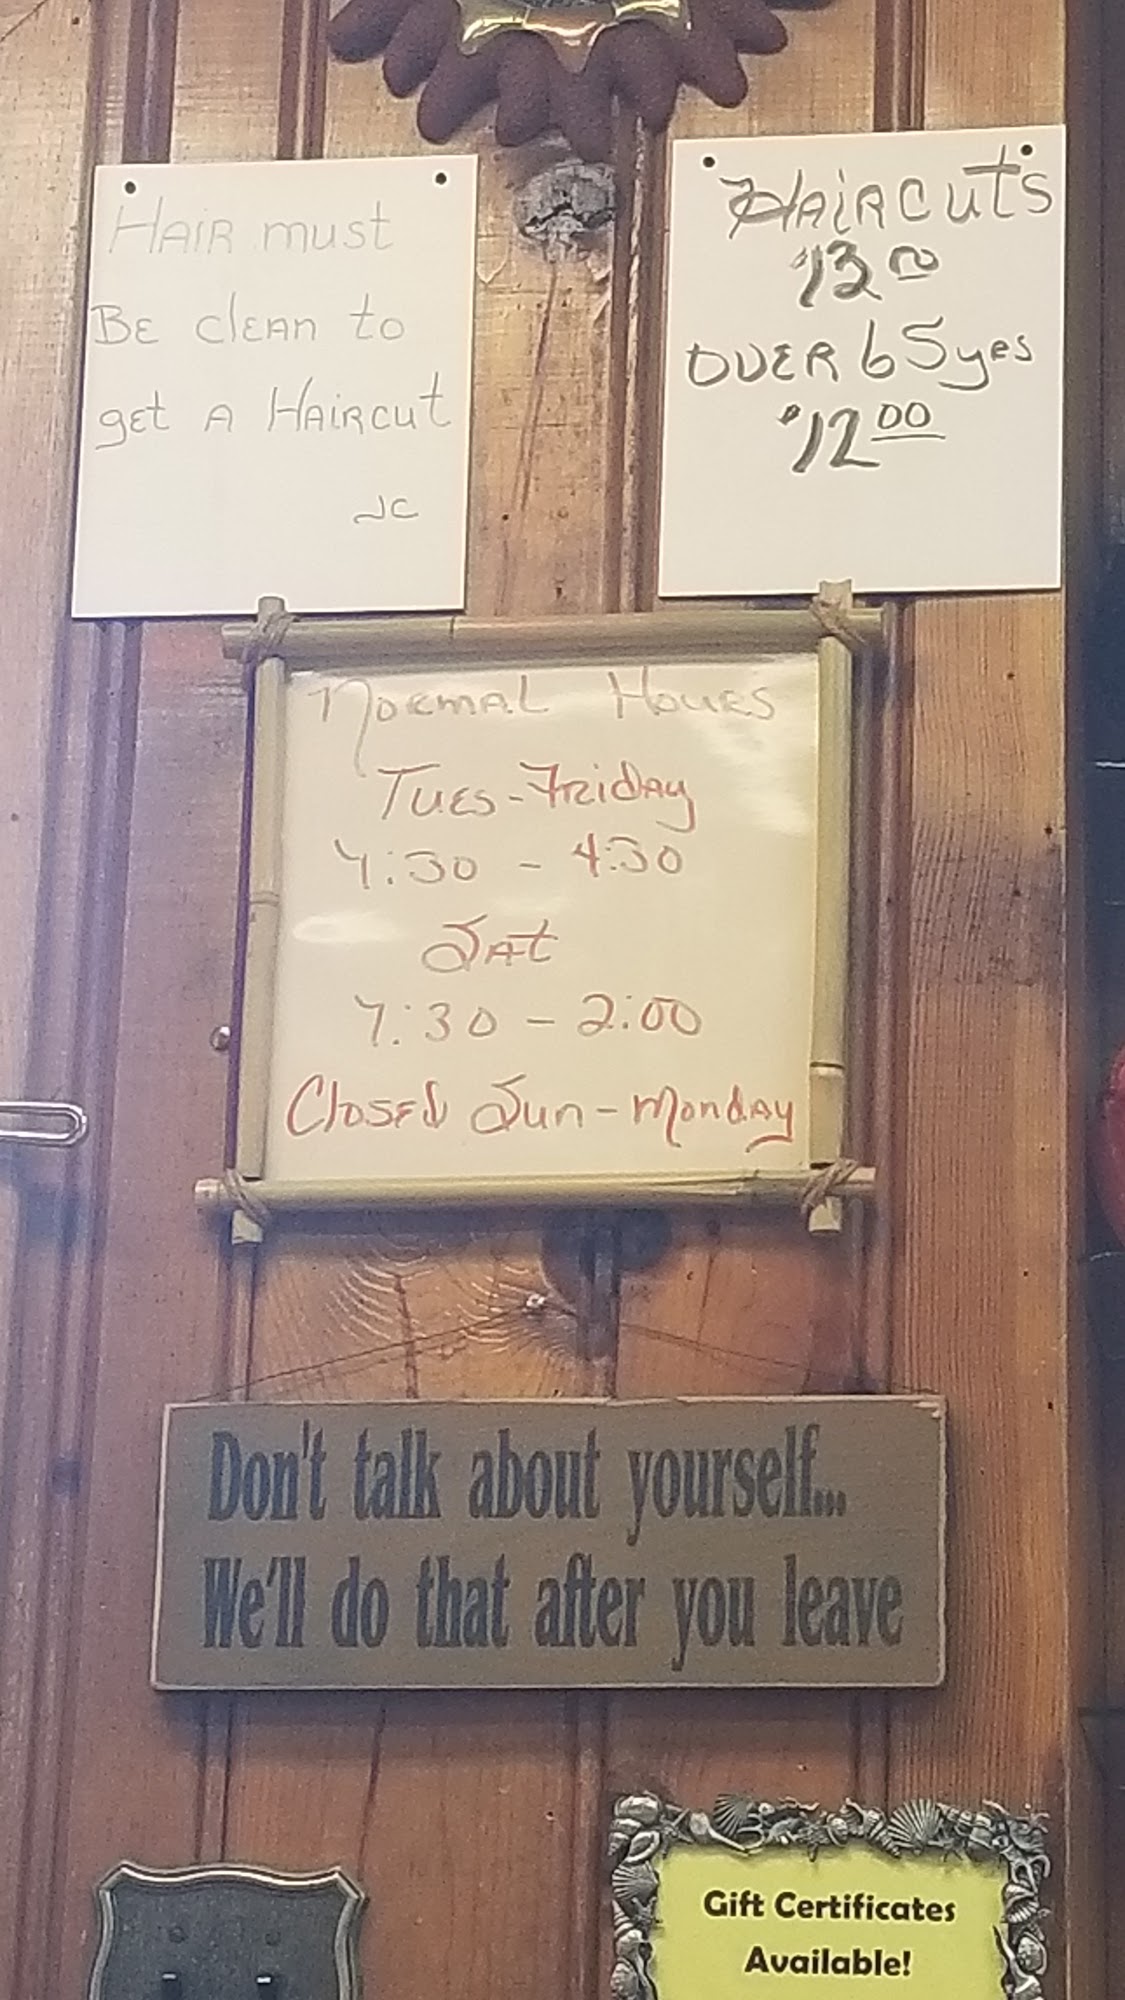 Hair must
Be clean to
get A Haircut
JC
Haircuts
$13.00
over 65 yrs
$12.00
Normal Hours
Tues-Friday
7:30 - 4:30
Sat
7:30 - 2:00
Closed Sun-Monday
Don't talk about yourself...
We'll do that after you leave
Gift Certificates
Available!